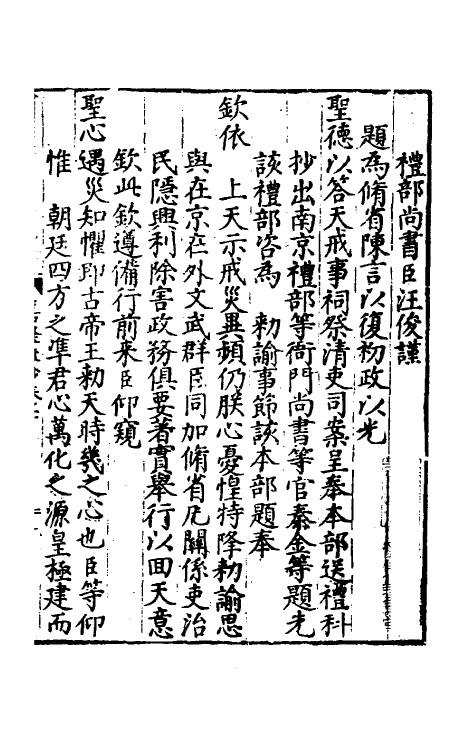 禮部尚書臣汪俊謹
題為脩省陳言以復初政以光
聖德以答天戒事祠祭清吏司案呈奉本部送禮科
抄出南京禮部等衙門尚書等官秦金等題先
該禮部咨為　勑諭事節該本部題奉
欽依　上天示戒災異頻仍朕心憂惶特降勑諭思
與在京在外文武群臣同加脩省凡關係吏治
民隱興利除害政務俱要著實舉行以回天意
欽此欽遵備行前來臣仰窺
聖心遇災知懼即古帝王勑天時幾之心也臣等仰
惟　朝廷四方之準君心萬化之源皇極建而